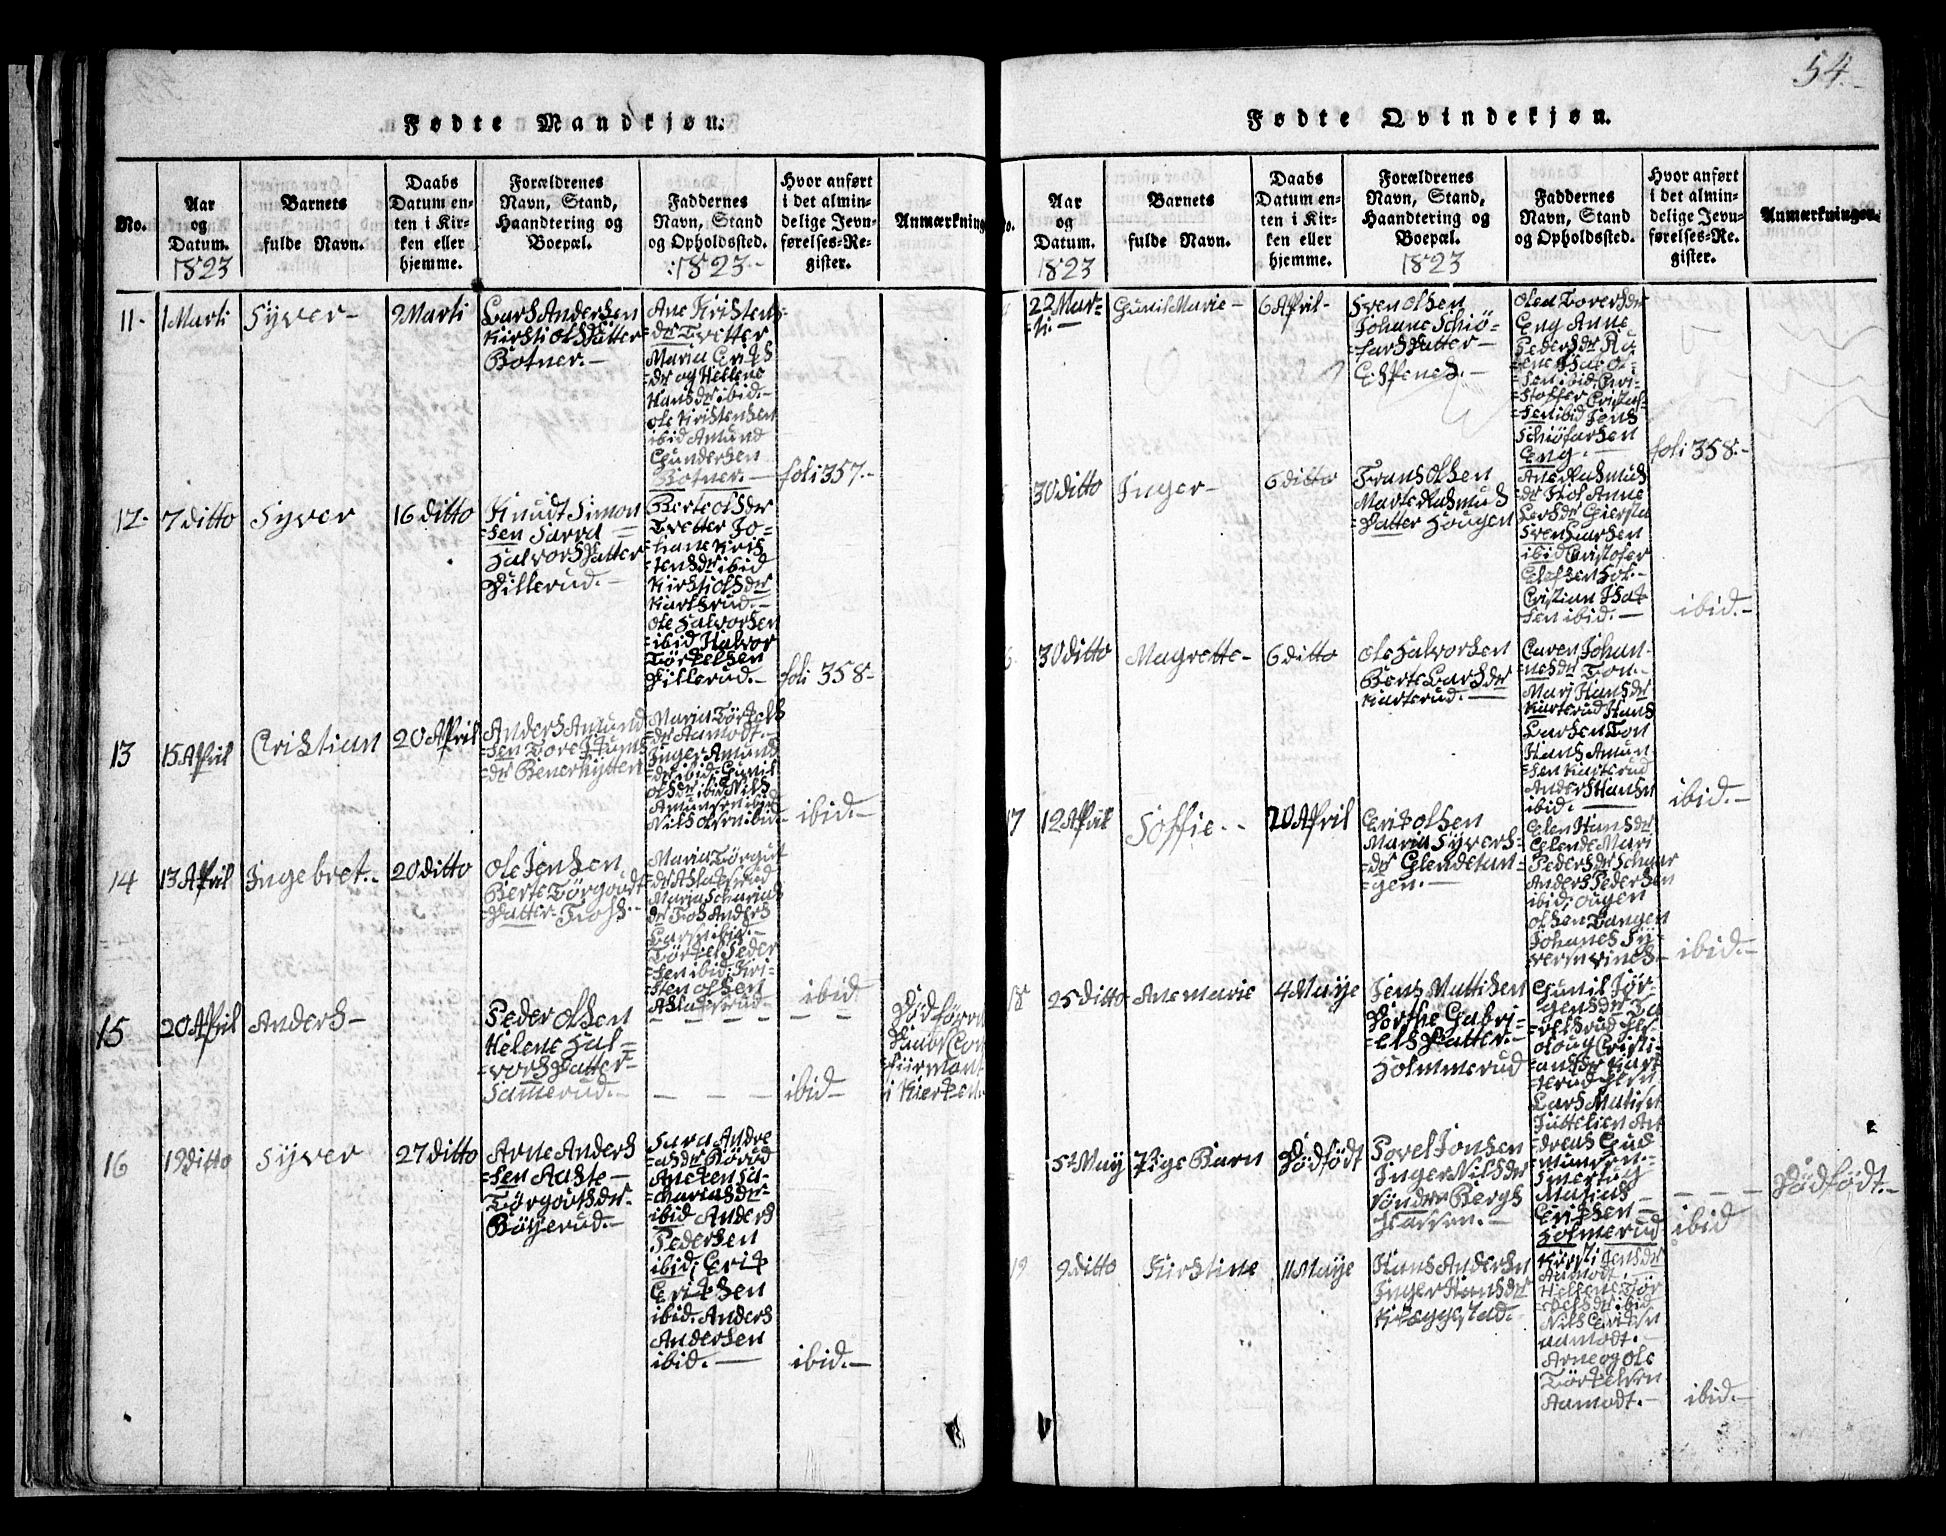 54.
Fødte Mandkjøn.
No.
Aar
og
Datum.
1823
Barnets
fulde Navn.
Daabs
Datum en-
ten i Kir-
ken eller
hjemme.
Forældrenes
Navn, Stand,
Haandtering og
Boepæl.
Faddernes
Navn, Stand
og Opholdssted.
1823.-
Hvor anført
i det almin-
delige Jevn-
førelses-Re-
gister.
Anmærkning
11-
1 Marti
Syver-
9 Marti
Lars Andersen
Kirsti Ols Datter
Botner.-
Ane Kristens
=dr Tvetter
Maria Eriks
=dr og Hellene
Hansdr ibid.-
Ole Kristensen
ibid Amund
Gundersen
Botner.-
foli 357.-
12-
7 ditto
Syver
16 ditto
Knudt Simon
=sen
Halvors Datter
Pillerud.-
Berte Olsdr
Tvetter Jo-
hane Kris
tensdr ibid
Kirsti Olsdr
Karlsrud.-
Ole Halvorsen
=ibid Halvor
Törkelsen
Pillerud.-
foli 358-
13
15 April
Cristian
20 April
Anders Amund
=sen Tore
=dr
Maria Törkels
dr Aamodt.-
Inger Amund
=dr ibid. Gunil
Olsdr ibid Nils
Amunsen ibid
Nils Olsen ibid-
ibid.-
14
13 April
Ingebret.-
20 ditto
Ole Jensen
Berte Törgouts
=Datter
Maria Törgut
Anders
Larsen ibid.-
Törkel Peder
=sen ibid; Kri-
=sten Olsen
ibid
15
20 April
Anders-
Peder Olsen
Helene Hal=
=vors Datter-
Samerud.-
ibid-
i Kierken.
16
19 ditto
Syver
27 ditto
Arne Anders
=sen Aaste-
Törgoutsdr
Böyerud.-
Sara Andre
=asdr
Aneken Za-
=hariasdr
ibid Anders
Pedersen
ibid; Erik
Eriksen
ibid. Anders
Andersen
ibid.-
ibid.-
Fødte Qvindekjøn.
No.
Aar
og
Datum.
1823
Barnets
fulde Navn.
Daabs
Datum en-
ten i Kir-
ken eller
hjemme.
Forældrenes
Navn, Stand,
Haandtering og
Boepæl.
1823
Faddernes
Navn, Stand
og Opholdssted.
Hvor anført
i det almin-
delige Jevn-
førelses-Re.
gister.
Anmærkninger.
22 Mar-
=ti.-
Gunil Marie-
6 April-
Sven Olsen
Johane Schiö-
=fars Datter-
Espenes.-
Olea Toversdr
Eng Anne
Pedersdr
=sen ibid, Cri-
=stoffer Cristof-
=sen ibid Jens
Schiöfarsen
Eng.-
foli 358.-
30 ditto
Inger-
6 ditto
Frans Olsen
Marte Rasmus
=Datter Hougen
Ane Rasmus
dr Hol Anne
Larsdr
Sven Larsen
ibid Cristofer
Hol.-
Cristian Isak
sen ibid.-
ibid.-
30 ditto
Magrette-
6 ditto
Ole Halvorsen
Berte Larsdr
Karterud.-
Caren Johan-
=nesdr Ton-
Mari Hansdr
Karterud Hans
Larsen Ton
Hans Amun-
=sen Karterud
Anders Hansn
ibid.
ibid.-
17
12 April
Soffie.-
20 April
Erik Olsen
Maria Syvers-
=dr Glendetan-
gen.-
Elen Hansdr
Glende Mari
Pedersdr
Anders Pedersen
ibid;
Olsen Tangen
Johanes Sy-
versn
ibid.-
18
25 ditto
Ane Marie
4 Maye
Jens Mattisen
Dorthe Gabri-
=els Datter.-
Holmmerud
Gunil Jör-
gensdr
Cristi-
ansdr Kar-
terud
Lars Matisn
Juttelien An-
dreas Gud
munsen.-
Matias
Eriksen-
Holmerud
ibid
5te May
Pige Barn
Dödfödt
Povel Jonsen
Inger Nilsdr
Dödfödt.-
19
9 ditto
Kirstine
11 Maye
Hans Andersen
Inger Hansdr
Kræggestad.
Kirsti Jensdr
Aamodt.
Hellene Tör
=kelsdr ibid
Nils Eriksn
Aamodt.-
Arne og Ole
Törkelsen
Aamodt.-
ibid.-